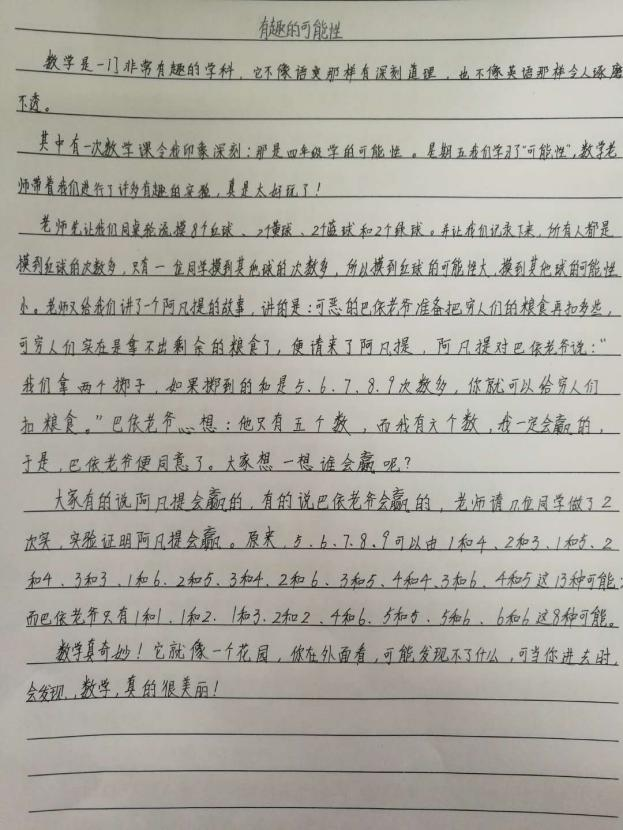 有趣的可能性
数学是一门非常有趣的学科，它不像语文那样有深刻道理，也不像英语那样令人琢磨
不透。
其中有一次数学课令我印象深刻：那是四年级学的可能性。星期五我们学习了“可能性”，数学老
师带着我们进行了许多有趣的实验，真是太好玩了！
老师先让我们同桌轮流摸8个红球、2个黄球、2个蓝球和2个绿球。并让我们记录下来，所有人都是
摸到红球的次数多，只有一位同学摸到其他球的次数多，所以摸到红球的可能性大，摸到其他球的可能性
小。老师又给我们讲了一个阿凡提的故事，讲的是：可恶的巴依老爷准备把穷人们的粮食再扣多些，
可穷人们实在是拿不出剩余的粮食了，便请来了阿凡提，阿凡提对巴依老爷说：“
我们拿两个掷子，如果掷到的和是5、6、7、8、9次数多，你就可以给穷人们
扣粮食。”巴依老爷心想：他只有五个数，而我有六个数，我一定会赢的，
于是，巴依老爷便同意了。大家想一想谁会赢呢？
大家有的说阿凡提会赢的，有的说巴依老爷会赢的，老师请几位同学做了2
次实，实验证明阿凡提会赢。原来，5、6、7、8、9可以由1和4、2和3、1和5、2
和4、3和3、1和6、2和5、3和4、2和6、3和5、4和4、3和6、4和5这13种可能；
而巴依老爷只有1和1、1和2、1和3、2和2、4和6、5和5、5和6、6和6这8种可能。
数学真奇妙！它就像一个花园，你在外面看，可能发现不了什么，可当你进去时，
会发现，数学，真的很美丽！